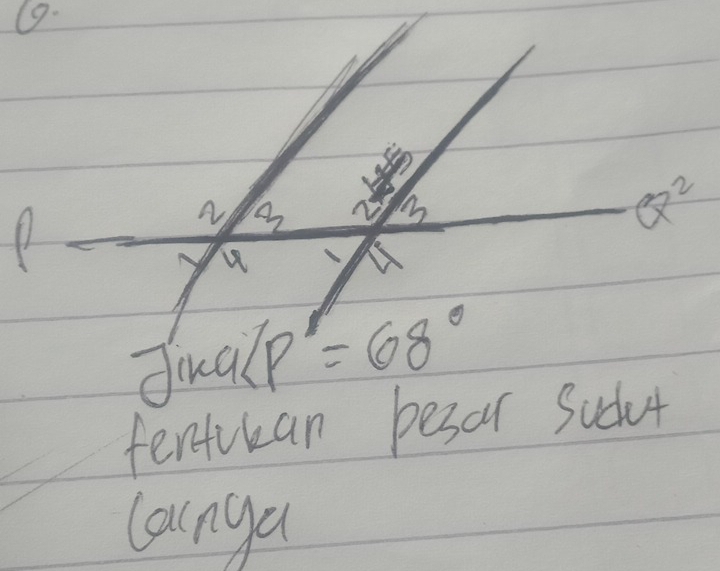 6.
2 3 2 3
P Q²
1 4 1 4
Jika ∠P = 68°
tentukan besar sudut
lainya